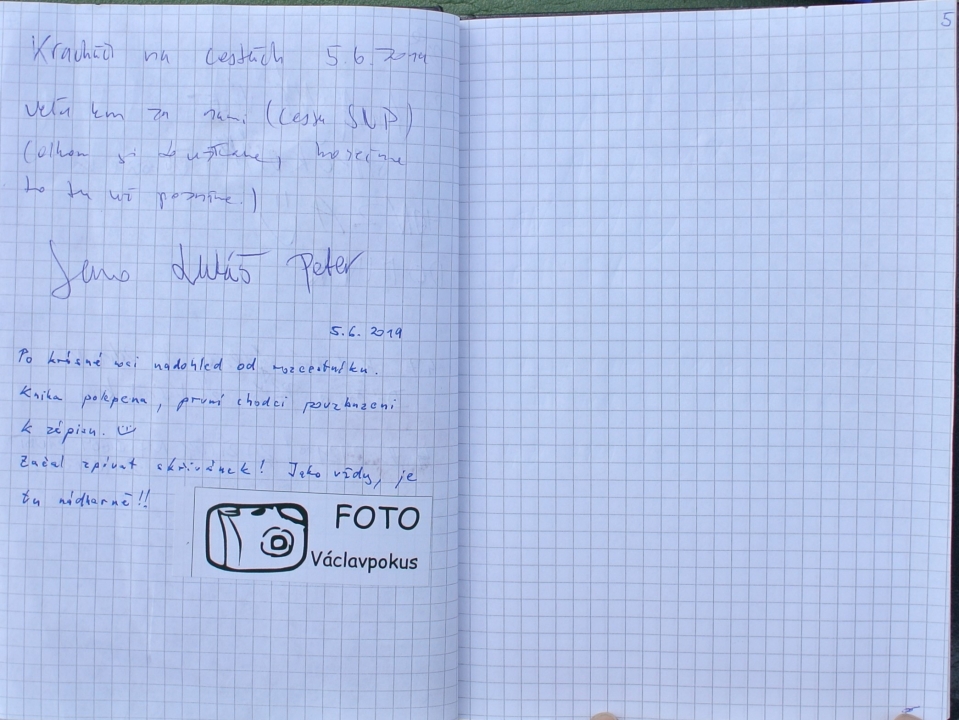 5
na cestách 5.6.2019
veľa km za nami (cesta SNP)
to tu už poznáme.)
Jano Lukáš Peter
5.6.2019
Po krásné noci nadohled od rozcestníku.
Kniha polepena, první chodci povzbuzeni
k zápisu.
Začal zpívat skřivánek! Jako vždy, je
tu nádherně!!
FOTO
Václavpokus